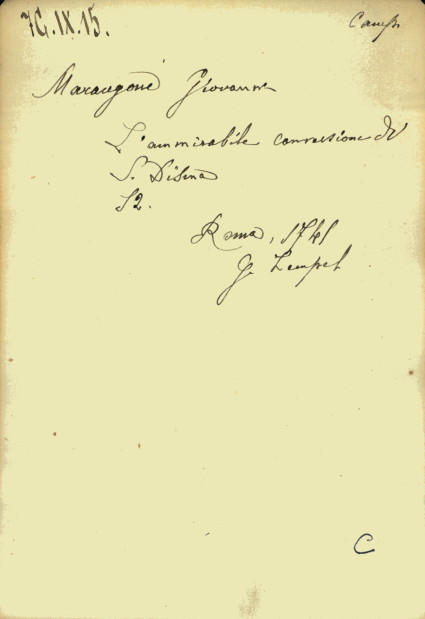 7G.IX.15.
Camp.
Marangoni Giovanni
L'ammirabile conversione di
S. Disma
12.
Roma, 1741
G. Zempel
C